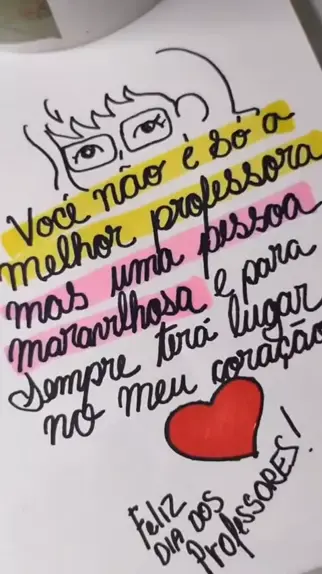 Você não é só a
melhor professora
mas uma pessoa
maravilhosa e para
sempre terá lugar
no meu coração
Feliz
DIA DOS
Professores!